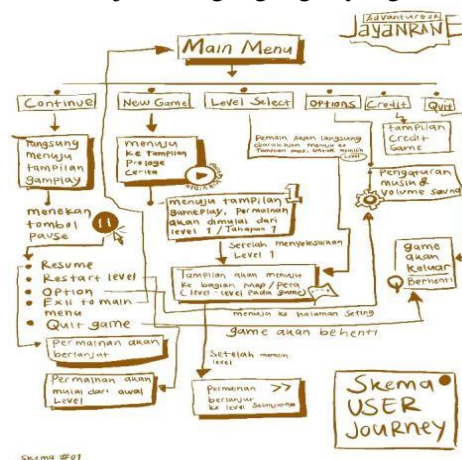 Advanture of
JAYANRANE
Main Menu
Continue
New Game
Level Select
Options
Credit
Quit
langsung
menuju
tampilan
gamplay
menuju
ke Tampilan
Prologe
Cerita
Pemain akan langsung
diarahkan menuju ke
Tampilan map. untuk memilih
Level
tampilan
Credit
Game
Pengaturan
musik &
volume sound
menekan
tombol
pause
menuju tampilan
gameplay, Permainan
akan dimulai dari
level 1 / Tahapan 1
Setelah menyelesaikan
Level 1
game
akan
keluar
Berhenti
Resume
Restart level
Option
Exit to main
menu
Quit game
Tampilan akan menuju
ke bagian map / Peta
(level-level pada game)
menuju ke halaman seting
game akan behenti
Permainan akan
berlanjut
Setelah memilih
level
Permainan akan
mulai dari awal
Level
Permainan >>
berlanjut
ke level Selanjutnya
Skema
USER
JOURNEY
Skema #01